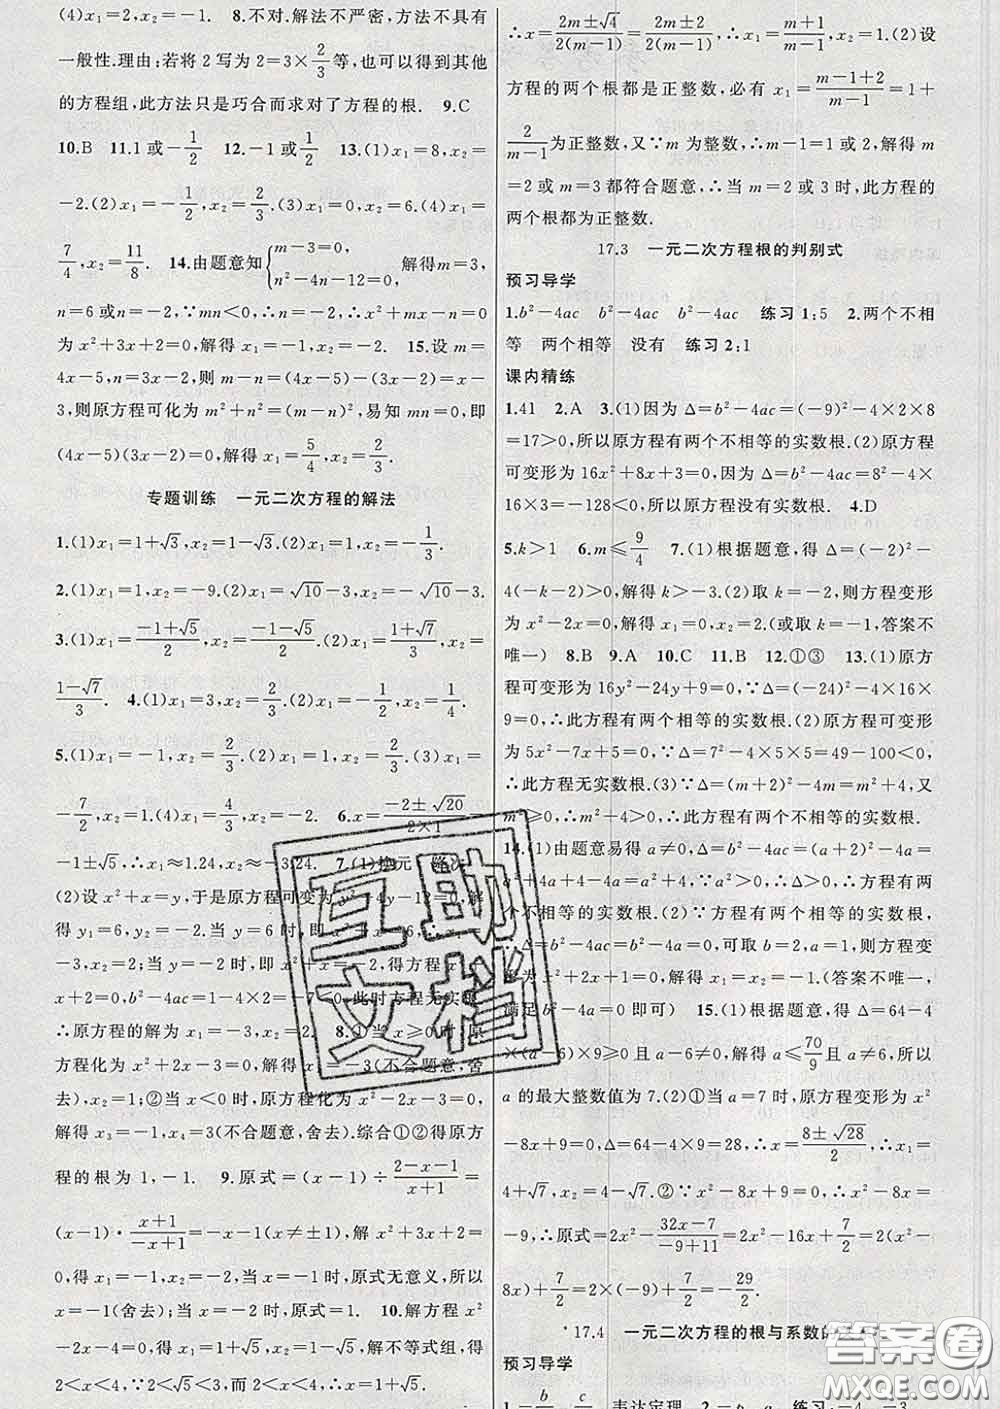 (4)x₁=2,x₂=-1. 8.不对.解法不严密,方法不具有
一般性.理由;若将2写为2=3×2/3等,也可以得到其他
的方程组,此方法只是巧合而求对了方程的根. 9.C
10.B 11.1或-1/2 12.-1或1/2 13.(1)x₁=8,x₂=
-2.(2)x₁=-1/2,x₂=2/3.(3)x₁=0,x₂=6.(4)x₁=
7/4,x₂=11/8. 14.由题意知{m-3=0, n²-4n-12=0, 解得m=3,
n=6或n=-2.∵mn<0,∴n=-2,∴x²+mx-n=0
为x²+3x+2=0,解得x₁=-1,x₂=-2. 15.设m=
4x-5,n=3x-2,则m-n=(4x-5)-(3x-2)=x-
3,则原方程可化为m²+n²=(m-n)²,易知mn=0,即
(4x-5)(3x-2)=0,解得x₁=5/4,x₂=2/3.
专题训练 一元二次方程的解法
1.(1)x₁=1+√3,x₂=1-√3.(2)x₁=1,x₂=-1/3.
2.(1)x₁=1,x₂=-9.(2)x₁=√10-3,x₂=-√10-3.
3.(1)x₁=(-1+√5)/2,x₂=(-1-√5)/2.(2)x₁=(1+√7)/3,x₂=
(1-√7)/3. 4.(1)x₁=3,x₂=2/3.(2)x₁=1,x₂=4.
5.(1)x₁=1,x₂=2/3.(2)x₁=1,x₂=2/3.(3)x₁=
-7/2,x₂=1.(4)x₁=4/3,x₂=-2. 6.x=(-2±√20)/(2×1)=
-1±√5,∴x₁≈1.24,x₂≈-3.24. 7.(1)换元
(2)设x²+x=y,于是原方程可变为y²-4y-12=0,解
得y₁=6,y₂=-2.当y=6时,即x²+x=6,∴x₁=
-3,x₂=2;当y=-2时,即x²+x=-2,得方程x²+
x+2=0,∵b²-4ac=1-4×2=-7<0,此时方程无实根.
∴原方程的解为x₁=-3,x₂=2. 8.①当x≥0时,原
方程化为x²+2x-3=0,解得x₁=1,x₂=-3(不合题意,舍
去),x₁=1;②当x<0时,原方程化为x²-2x-3=0,
解得x₃=-1,x₄=3(不合题意,舍去).综合①②得原方
程的根为1,-1. 9.原式=(x-1)÷(2-x-1)/(x+1)=
(x-1)·(x+1)/(-x+1)=-x-1(x≠±1),解x²+3x+2=
0,得x₁=-1,x₂=-2.当x=-1时,原式无意义,所以
x=-1(舍去);当x=-2时,原式=1. 10.解方程x²
-2x-4=0,得x₁=1+√5,x₂=1-√5,解不等式组,得
2<x<4,∵2<√5<3,而2<x<4,∴x=1+√5.
∴x=(2m±√4)/(2(m-1))=(2m±2)/(2(m-1)),∴x₁=(m+1)/(m-1),x₂=1.(2)设
方程的两个根都是正整数,必有x₁=(m-1+2)/(m-1)=1+
2/(m-1)为正整数,又∵m为整数,∴m-1=1或2,解得m
=2或m=3都符合题意,∴当m=2或3时,此方程的
两个根都为正整数.
17.3 一元二次方程根的判别式
预习导学
1.b²-4ac b²-4ac b²-4ac 练习1:5 2.两个不相
等 两个相等 没有 练习2:1
课内精练
1.41 2.A 3.(1)因为Δ=b²-4ac=(-9)²-4×2×8
=17>0,所以原方程有两个不相等的实数根.(2)原方程
可变形为16x²+8x+3=0,因为Δ=b²-4ac=8²-4×
16×3=-128<0,所以原方程没有实数根. 4.D
5.k>1 6.m≤9/4 7.(1)根据题意,得Δ=(-2)²-
4(-k-2)>0,解得k>-3.(2)取k=-2,则方程变形
为x²-2x=0,解得x₁=0,x₂=2.(或取k=-1,答案不
唯一) 8.B 9.A 10.C 11.B 12.①③ 13.(1)原方
程可变形为16y²-24y+9=0,∵Δ=(-24)²-4×16×
9=0,∴此方程有两个相等的实数根.(2)原方程可变形
为5x²-7x+5=0,∵Δ=7²-4×5×5=49-100<0,
∴此方程无实数根.(3)∵Δ=(m+2)²-4m=m²+4,又
∵m²≥0,∴m²+4>0,∴此方程有两个不相等的实数根.
14.(1)由题意易得a≠0,Δ=b²-4ac=(a+2)²-4a=
a²+4a+4-4a=a²+4,∵a²>0,∴Δ>0,∴方程有两
个不相等的实数根.(2)∵方程有两个相等的实数根,
∴Δ=b²-4ac=b²-4a=0,可取b=2,a=1,则方程变
形为x²+2x+1=0,解得x₁=x₂=-1.(答案不唯一,
满足b²-4a=0即可) 15.(1)根据题意,得Δ=64-4
×(a-6)×9≥0且a-6≠0,解得a≤70/9且a≠6,所以
a的最大整数值为7.(2)①当a=7时,原方程变形为x²
-8x+9=0,Δ=64-4×9=28,∴x=(8±√28)/2,∴x₁=
4+√7,x₂=4-√7.②∵x²-8x+9=0,∴x²-8x=
-9,∴原式=2x²-(32x-7)/(-9+11)=2x²-16x+7/2=2(x²-
8x)+7/2=2×(-9)+7/2=-29/2.
17.4 一元二次方程的根与系数的
预习导学
互助
文档
答案圈
MXQE.COM